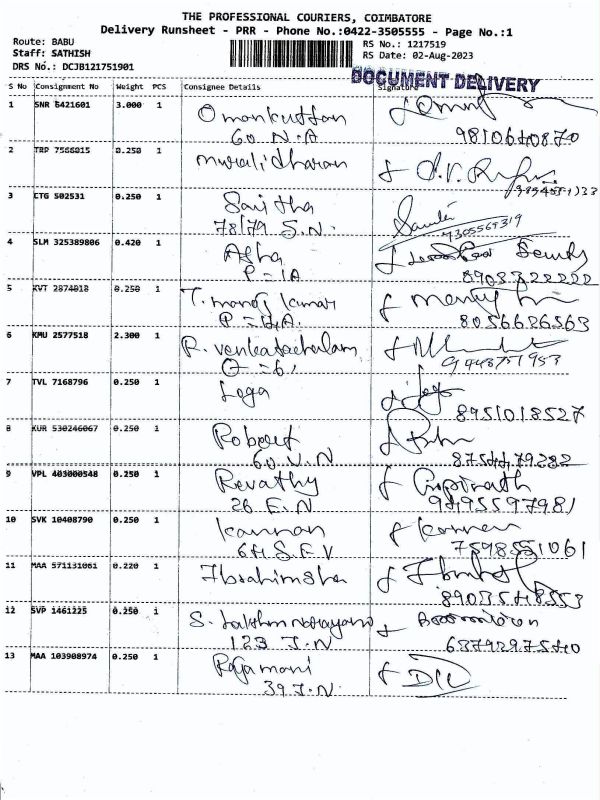 THE PROFESSIONAL COURIERS, COIMBATORE
Delivery Runsheet - PRR - Phone No.:0422-3505555 - Page No.:1
Route: BABU
Staff: SATHISH
DRS No.: DCJB121751901
RS No.: 1217519
RS Date: 02-Aug-2023
DOCUMENT DELIVERY
S No Consignment No Weight PCS Consignee Details Signature
1 SNR 6421601 3.000 1 Omankuttan
60 N.A 9810640870
2 TRP 7566015 0.250 1 Muralidharan
3 CTG 502531 0.250 1 Savitha
78/79 S.N. 9305569319
4 SLM 325389806 0.420 1 Asha
P = 1A 8903322222
5 KVT 2874018 0.250 1 T. manoj kumar
8056626563
6 KMU 2577518 2.300 1 R. venkatachalam
9448751953
7 TVL 7168796 0.250 1 Loga
8951018527
8 KUR 530246067 0.250 1 Robert
60 V.N 8754479282
9 VPL 403000548 0.250 1 Revathy Gopinath
26 E.N 9495597981
10 SVK 10408790 0.250 1 Kannan Kannan
64 S.F.V 7598551061
11 MAA 571131061 0.220 1 Ibrahimsha
8903548553
12 SVP 1461225 0.250 1 S. Lakshminarayanan
123 J.N 6379297540
13 MAA 103908974 0.250 1 Rajamani
39 J.N.